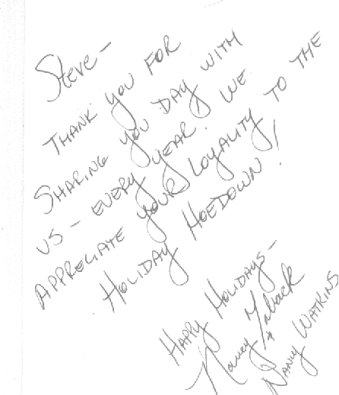 Steve -
THANK YOU FOR
SHARING YOU DAY WITH
US - EVERY YEAR. WE
APPRECIATE YOUR LOYALITY TO THE
HOLIDAY HOEDOWN!
HAPPY HOLIDAYS -
Nancy
+
NANCY WATKINS